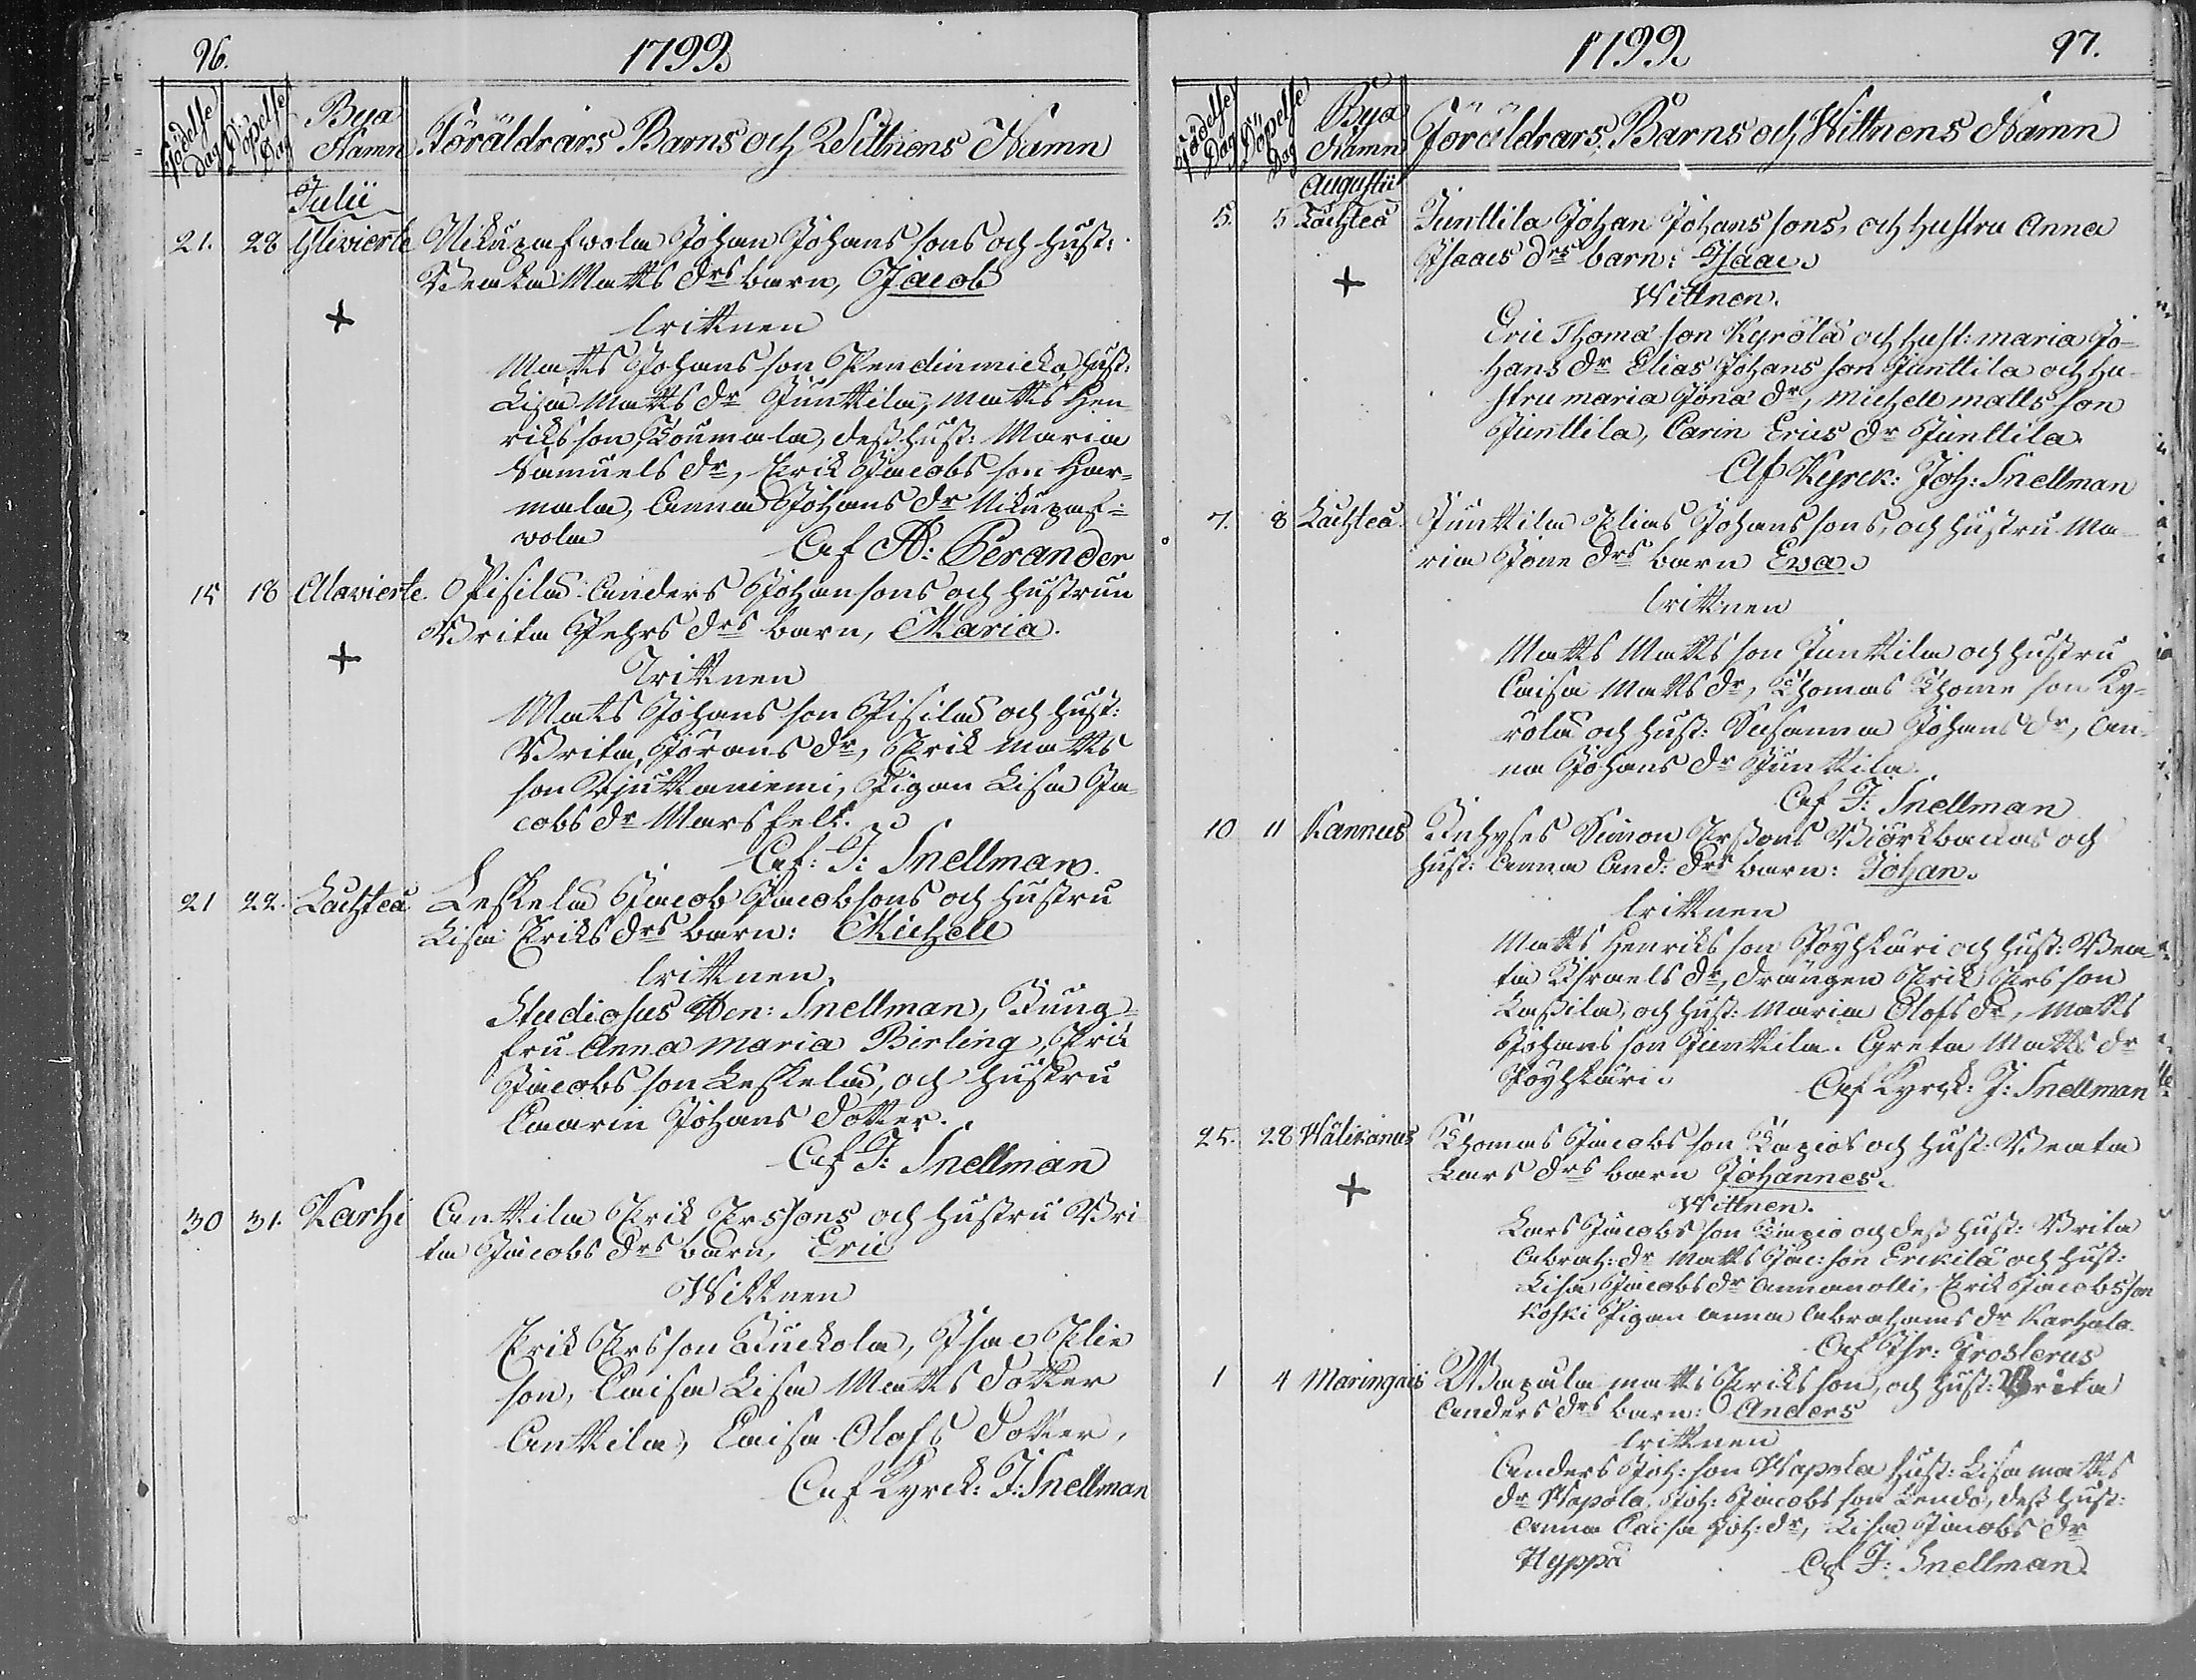 96.
1799.
Födelse Dag
Döpelse Dag
Bya Namn
Föräldrars Barns och Wittnens Namn
Julii
21. 28 Ylivierle Nikupafwola Johan Johans sons och hust:
Beata Matts drs barn, Jacob
+
Wittnen
Matts Johans son Pendinmicko, hust:
Lisa Matts dr Junttila, Matts Hen
riks son Toumala, dess hust: Maria
Samuels dr, Erik Jacobs son Har=
mala, Anna Johans dr Nikupaf=
wola
Af A: Perander
15 18 Alavierle. Pisilä Anders Johansons och hustrun
Brita Pehrs drs barn, Maria.
+
Wittnen
Mats Johans son Pisilä och hust:
Brita, Jörans dr, Erik Matts
son Niuttaniemi, Pigan Lisa Ja
cobs dr Marsfelt.
Af: J: Snellman.
21 22. Lachtea Leskelä Jacob Jacobsons och hustru
Lisa Eriks drs barn: Michell
Wittnen.
Studiosus Hen: Snellman, Jung=
fru Anna Maria Birling, Eric
Jacobs son Leskelä, och hustru
Caarin Johans dotter.
Af J: Snellman
30 31. Karhi Anttila Erik Erssons och hustru Bri
ta Jacobs drs barn, Eric
Wittnen
Erik Ersson Kuckola, Isac Elie
son, Caisa Lisa Matts dotter
Anttila, Caisa Olofs dotter,
Af Kyrck: J: Snellman
1799.
97.
Födelse Dag
Döpelse Dag
Bya Namn
Föräldrars, Barns och Wittnens Namn
Augustii
5. 5 Lachtea Junttila Johan Johans sons, och hustru Anna
Isaacs drs barn: Isaac.
+
Wittnen.
Eric Thomæ son Kyrölä och hust: maria Jo=
hans dr Elias Johans son Junttila och hu
stru maria Jona dr, michell matts son
Junttila, Carin Erics dr Junttila.
Af Kyrck: Joh: Snellman
7. 8 Lachtea. Junttila Elias Johans sons, och hustru Ma
ria Jone drs barn Ewa.
Wittnen
Matts Matts son Junttila och hustru
Caisa Matts dr, Thomas Thome son Ky=
rölä och hust: Susanna Johans dr, An
na Johans dr Junttila.
Af J: Snellman
10 11 Kannus Simon Erssons Biörkbackas och
hust: Anna And: drs barn: Johan.
Wittnen
Matts Henriks son Pöyhkäri och hust: Bea
ta Israels dr, drängen Erik Ers son
Kassila, och hust: Maria Olofs dr, Matts
Johans son Junttila. Greta Matts dr
Pöyhkäri.
Af Kyrck: J: Snellman
25. 28 Wälikanus Thomas Jacobs son Kapios och hust: Beata
Lars drs barn Johannes.
+
Wittnen.
Lars Jacobs son Kapio och dess hust: Brita
Abrah: dr Matts Jac: son Erkilä och hust:
Lisa Jacobs dr Annanolli, Erik Jacobsson
Koski Pigan anna Abrahams dr Karhala.
Af Isr: Frosterus
1 4 Maringais Wapula matts Eriks son, och hust: Brita
Anders drs barn: Anders
Wittnen
Anders Joh: son Wapola hust: Lisa matts
dr Wapola, Joh: Jacobs son Lendo, dess hust:
Anna Caisa Joh: dr, Lisa Jacobs dr
Hyppä
Af J: Snellman.